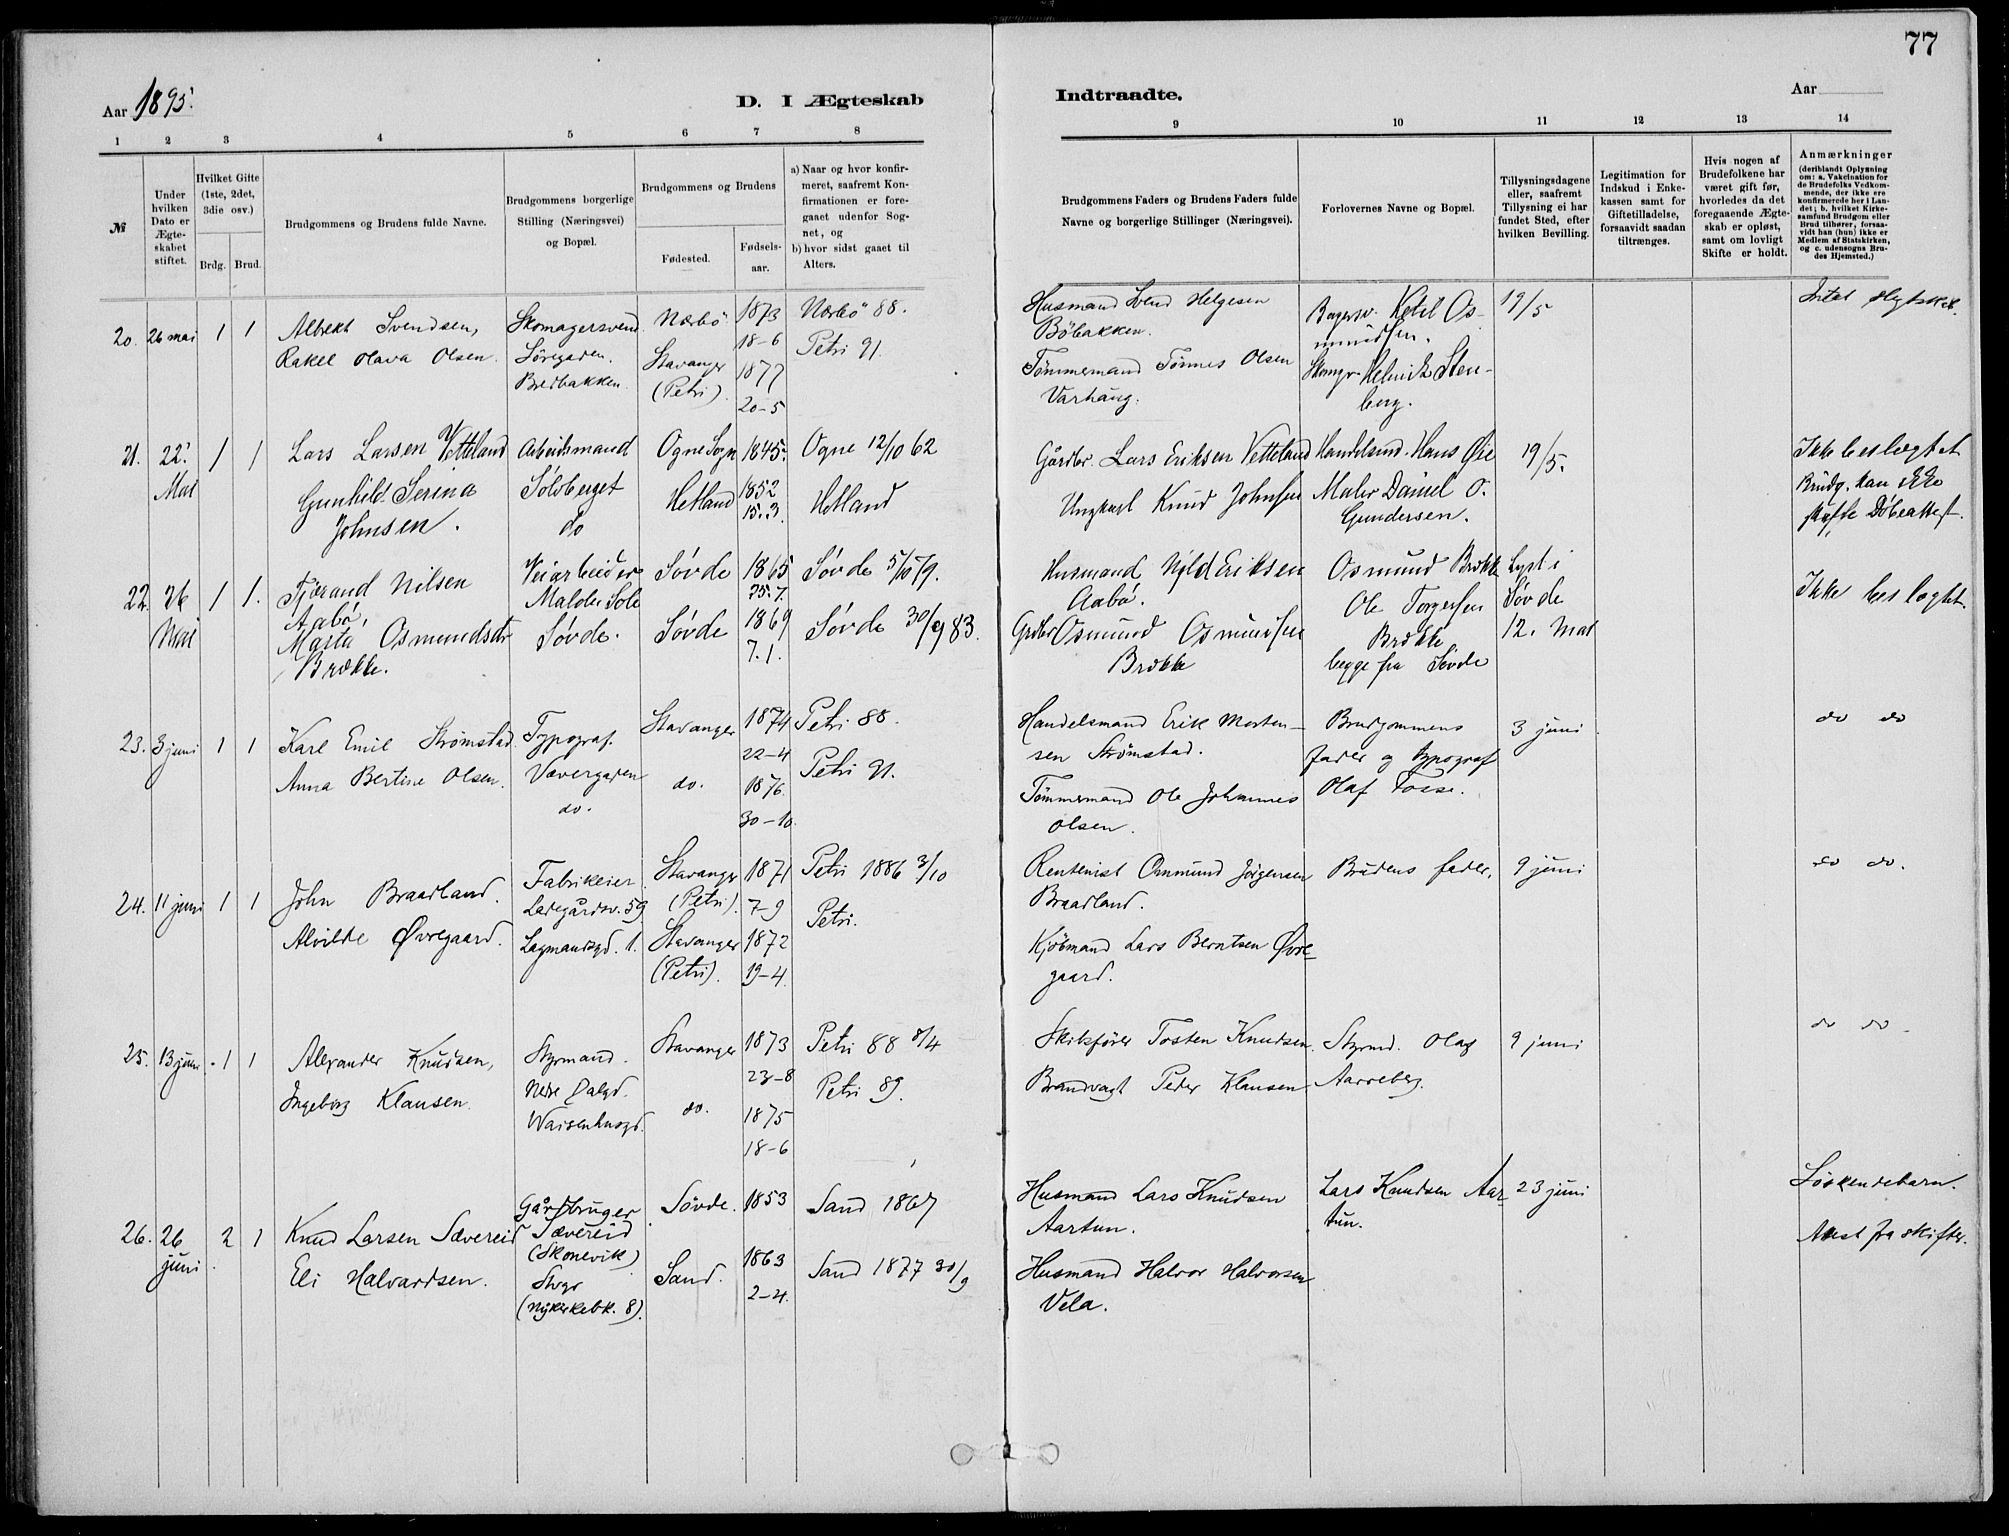 77
Aar 1895.
D. I Ægteskab
Indtraadte.
Aar
1 2 3 4 5 6 7 8
9 10 11 12 13 14
№
Under hvilken Dato er Ægteskabet stiftet.
Hvilket Gifte (1ste, 2det, 3die osv.)
Brdg. Brud.
Brudgommens og Brudens fulde Navne.
Brudgommens borgerlige Stilling (Næringsvei) og Bopæl.
Brudgommens og Brudens
Fødested.
Fødsels-aar.
a) Naar og hvor konfir-
meret, saafremt Kon-
firmationen er fore-
gaaet udenfor Sog-
net, og
b) hvor sidst gaaet til
Alters.
Brudgommens Faders og Brudens Faders fulde
Navne og borgerlige Stillinger (Næringsvei).
Forlovernes Navne og Bopæl.
Tillysningsdagene
eller, saafremt
Tillysning ei har
fundet Sted, efter
hvilken Bevilling.
Legitimation for
Indskud i Enke-
kassen samt for
Giftetilladelse,
forsaavidt saadan
tiltrænges.
Hvis nogen af
Brudefolkene har
været gift før,
hvorledes da det
foregaaende Ægte-
skab er opløst,
samt om lovligt
Skifte er holdt.
Anmærkninger
(deriblandt Oplysning
om: a. Vakcination for
de Brudefolks Vedkom-
mende, der ikke ere
konfirmerede her i Lan-
det; b. hvilket Kirke-
samfund Brudgom eller
Brud tilhører, forsaa-
vidt han (hun) ikke er
Medlem af Statskirken,
og c. udensogns Bru-
des Hjemsted.)
20. 26 mai 1 1
Albrekt Svendsen,
Rakel Olava Olsen.
Skomagersvend
Söregaden.
Bredbakken.
Nærbö
Stavanger
(Petri).
1873
18-6
1877
20-5
Nærbö 88.
Petri 91.
Husmand Svend Helgesen
Böbakken.
Tömmermand Tönnes Olsen
Varhaug.
Bagersv. Ketil Os-
mundsen.
Skomgr. Helmik Sten-
berg.
19/5
Intet slegtskab.
21. 22. Mai 1 1
Lars Larsen Vetteland
Gunhild Serina
Johnsen.
Arbeidsmand
Sölvberget
do
Ogne Sogn
Hetland
1845.
1852
15.3.
Ogne 12/10 62
Hetland
Gårdbr. Lars Eriksen Vetteland
Ungkarl Knud Johnsen
Handelsmd. Hans Øie
Maler Daniel O.
Gundersen.
19/5.
Ikke beslegtet
Brudg. kan ikke
skaffe Döbeattest.
22. 26 Mai 1 1.
Tjerand Nilsen
Aabö,
Marta Osmundsdtr
Brække.
Veiarbeider
Malde Sole
Søvde.
Søvde
Søvde
1865
25.7.
1869
7.1.
Søvde 5/10 79.
Søvde 30/9 83.
Husmand Nils Eriksen
Aabö.
Grdbr Osmund Osmundsen
Brække
Osmund Brække
Ole Torgersen
Brække
begge fra Søvde
Lyst i
Søvde
12. Mai
Ikke beslegtet.
23. 3 juni 1 1
Karl Emil Strømstad
Anna Bertine Olsen.
Typograf.
Vævergaden
do.
Stavanger
do.
1874
22-4
1876.
30-10.
Petri 88.
Petri 91.
Handelsmand Erik Morten-
sen Strømstad.
Tömmermand Ole Johannes
Olsen.
Brudgommens
fader og typograf
Olaf Fosse.
3 juni
do do
24. 11 juni 1 1
John Braadland.
Alvilde Øvregaard.
Fabrikeier
Ladegårdsv. 59
Lagmandsgd. 1.
Stavanger
(Petri).
Stavanger
(Petri).
1871
7-9
1872
19-4.
Petri 1886 3/10
Petri.
Rentenist Ommund Jörgensen
Braadland.
Kjöbmand Lars Berntsen Øvre-
gaard.
Brudens fader.
9 juni
do do.
25. 13 juni 1 1
Alexander Knudsen,
Ingeborg Klausen.
Styrmand.
Nedre Dalgd.
Waisenhusgd.
Stavanger
do.
1873
23-8
1875
18-6
Petri 88 8/4
Petri 89.
Skibsfører Tosten Knudsen.
Brandvagt Peder Klausen
Styrmd. Olaf
Aarreberg.
9 juni
do do.
26. 26 juni 2 1
Knud Larsen Sævereid
Eli Halvardsen.
Gårdbruger
Sævereid
(Skonevik)
Stvgr
(Nykirkebk. 8).
Søvde.
Sand.
1853
1863
2-4.
Sand 1867
Sand 1877 30/9
Husmand Lars Knudsen
Aartun.
Husmand Halvor Halvorsen
Vela.
Lars Knudsen Aar-
tun.
23 juni
Söskendebarn.
Attest fra skifter.